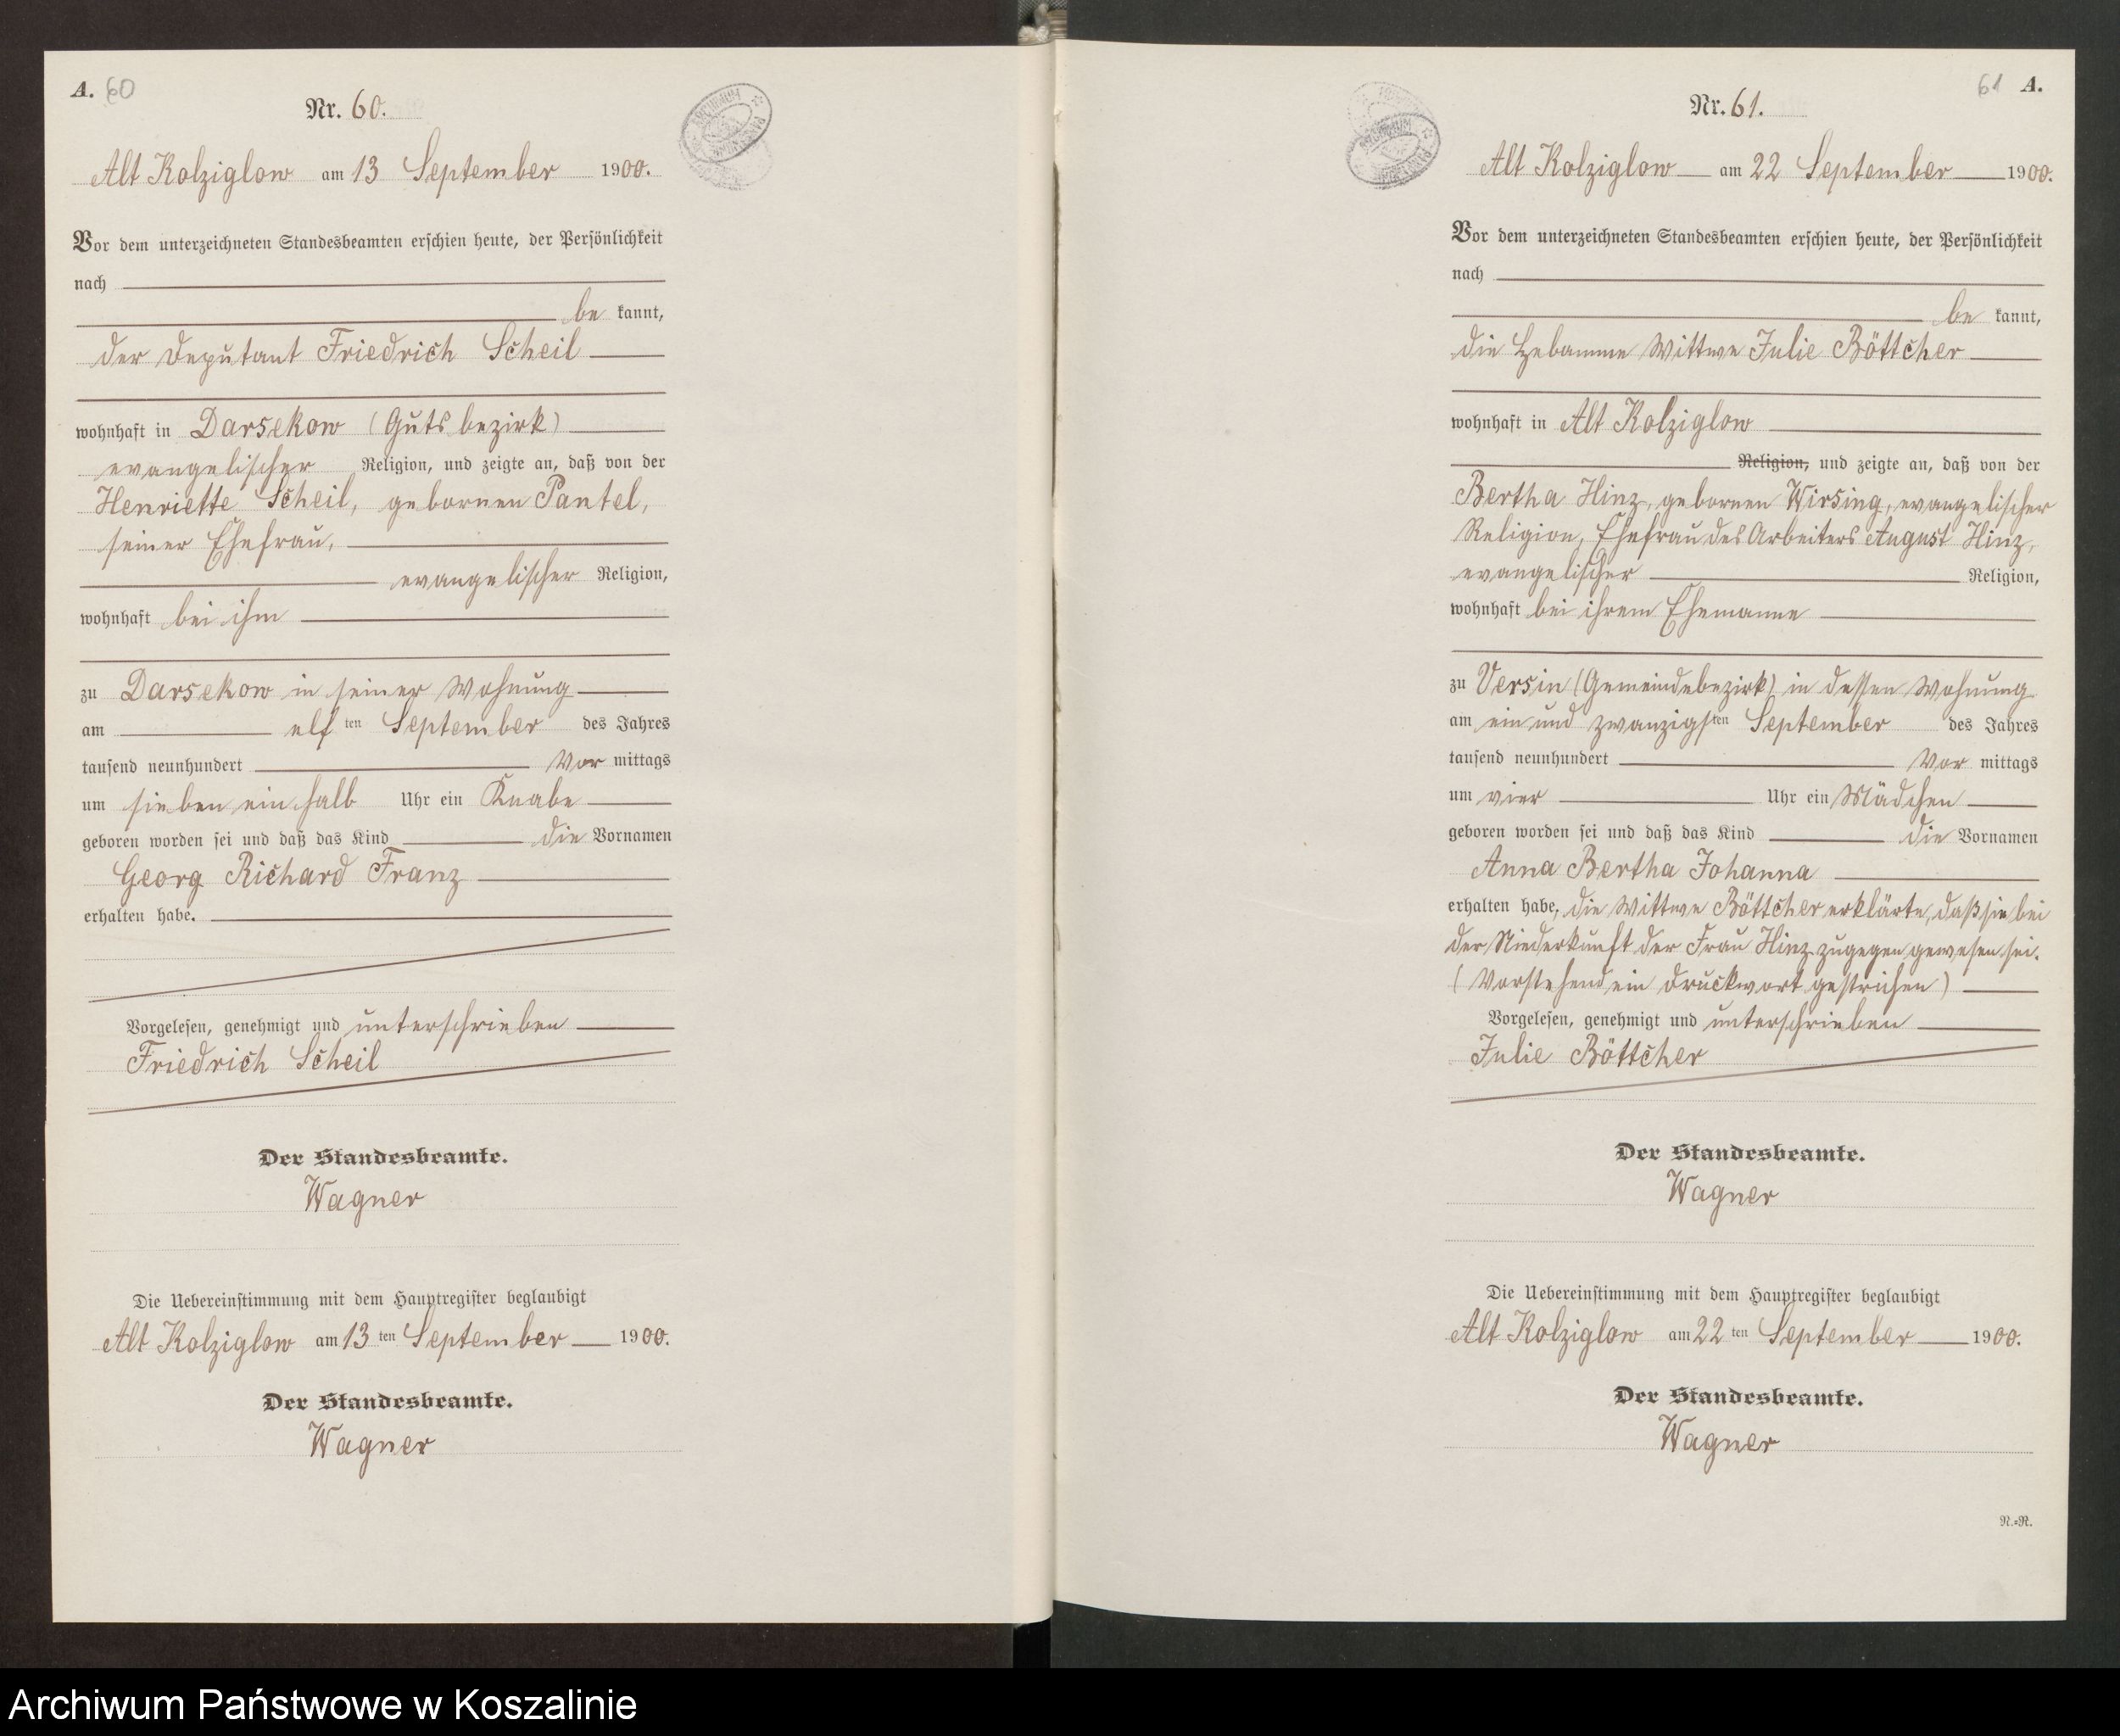 A. 60
Nr. 60.
Alt Kolziglow am 13 September 1900.
Vor dem unterzeichneten Standesbeamten erschien heute, der Persönlichkeit
nach
be kannt,
der Deputant Friedrich Scheil
wohnhaft in Darsekow (Gutsbezirk)
evangelischer Religion, und zeigte an, daß von der
Henriette Scheil, gebornen Pantel,
seiner Ehefrau,
evangelischer Religion,
wohnhaft bei ihm
zu Darsekow in seiner Wohnung
am elf ten September des Jahres
tausend neunhundert Vor mittags
um sieben ein halb Uhr ein Knabe
geboren worden sei und daß das Kind die Vornamen
Georg Richard Franz
erhalten habe.
Vorgelesen, genehmigt und unterschrieben
Friedrich Scheil
Der Standesbeamte.
Wagner
Die Uebereinstimmung mit dem Hauptregister beglaubigt
Alt Kolziglow am 13 ten September 1900.
Der Standesbeamte.
Wagner
ARCHIWUM
61 A.
Nr. 61.
Alt Kolziglow am 22 September 1900.
Vor dem unterzeichneten Standesbeamten erschien heute, der Persönlichkeit
nach
be kannt,
die Hebamme Wittwe Julie Böttcher
wohnhaft in Alt Kolziglow
Religion, und zeigte an, daß von der
Bertha Hinz, gebornen Wirsing, evangelischer
Religion, Ehefrau des Arbeiters August Hinz,
evangelischer Religion,
wohnhaft bei ihrem Ehemanne
zu Versin (Gemeindebezirk) in dessen Wohnung
am ein und zwanzigsten September des Jahres
tausend neunhundert Vor mittags
um vier Uhr ein Mädchen
geboren worden sei und daß das Kind die Vornamen
Anna Bertha Johanna
erhalten habe, die Wittwe Böttcher erklärte, daß sie bei
der Niederkunft der Frau Hinz zugegen gewesen sei.
(Vorstehend ein Druckwort gestrichen)
Vorgelesen, genehmigt und unterschrieben
Julie Böttcher
Der Standesbeamte.
Wagner
Die Uebereinstimmung mit dem Hauptregister beglaubigt
Alt Kolziglow am 22 ten September 1900.
Der Standesbeamte.
Wagner
N.=R.
Archiwum Państwowe w Koszalinie